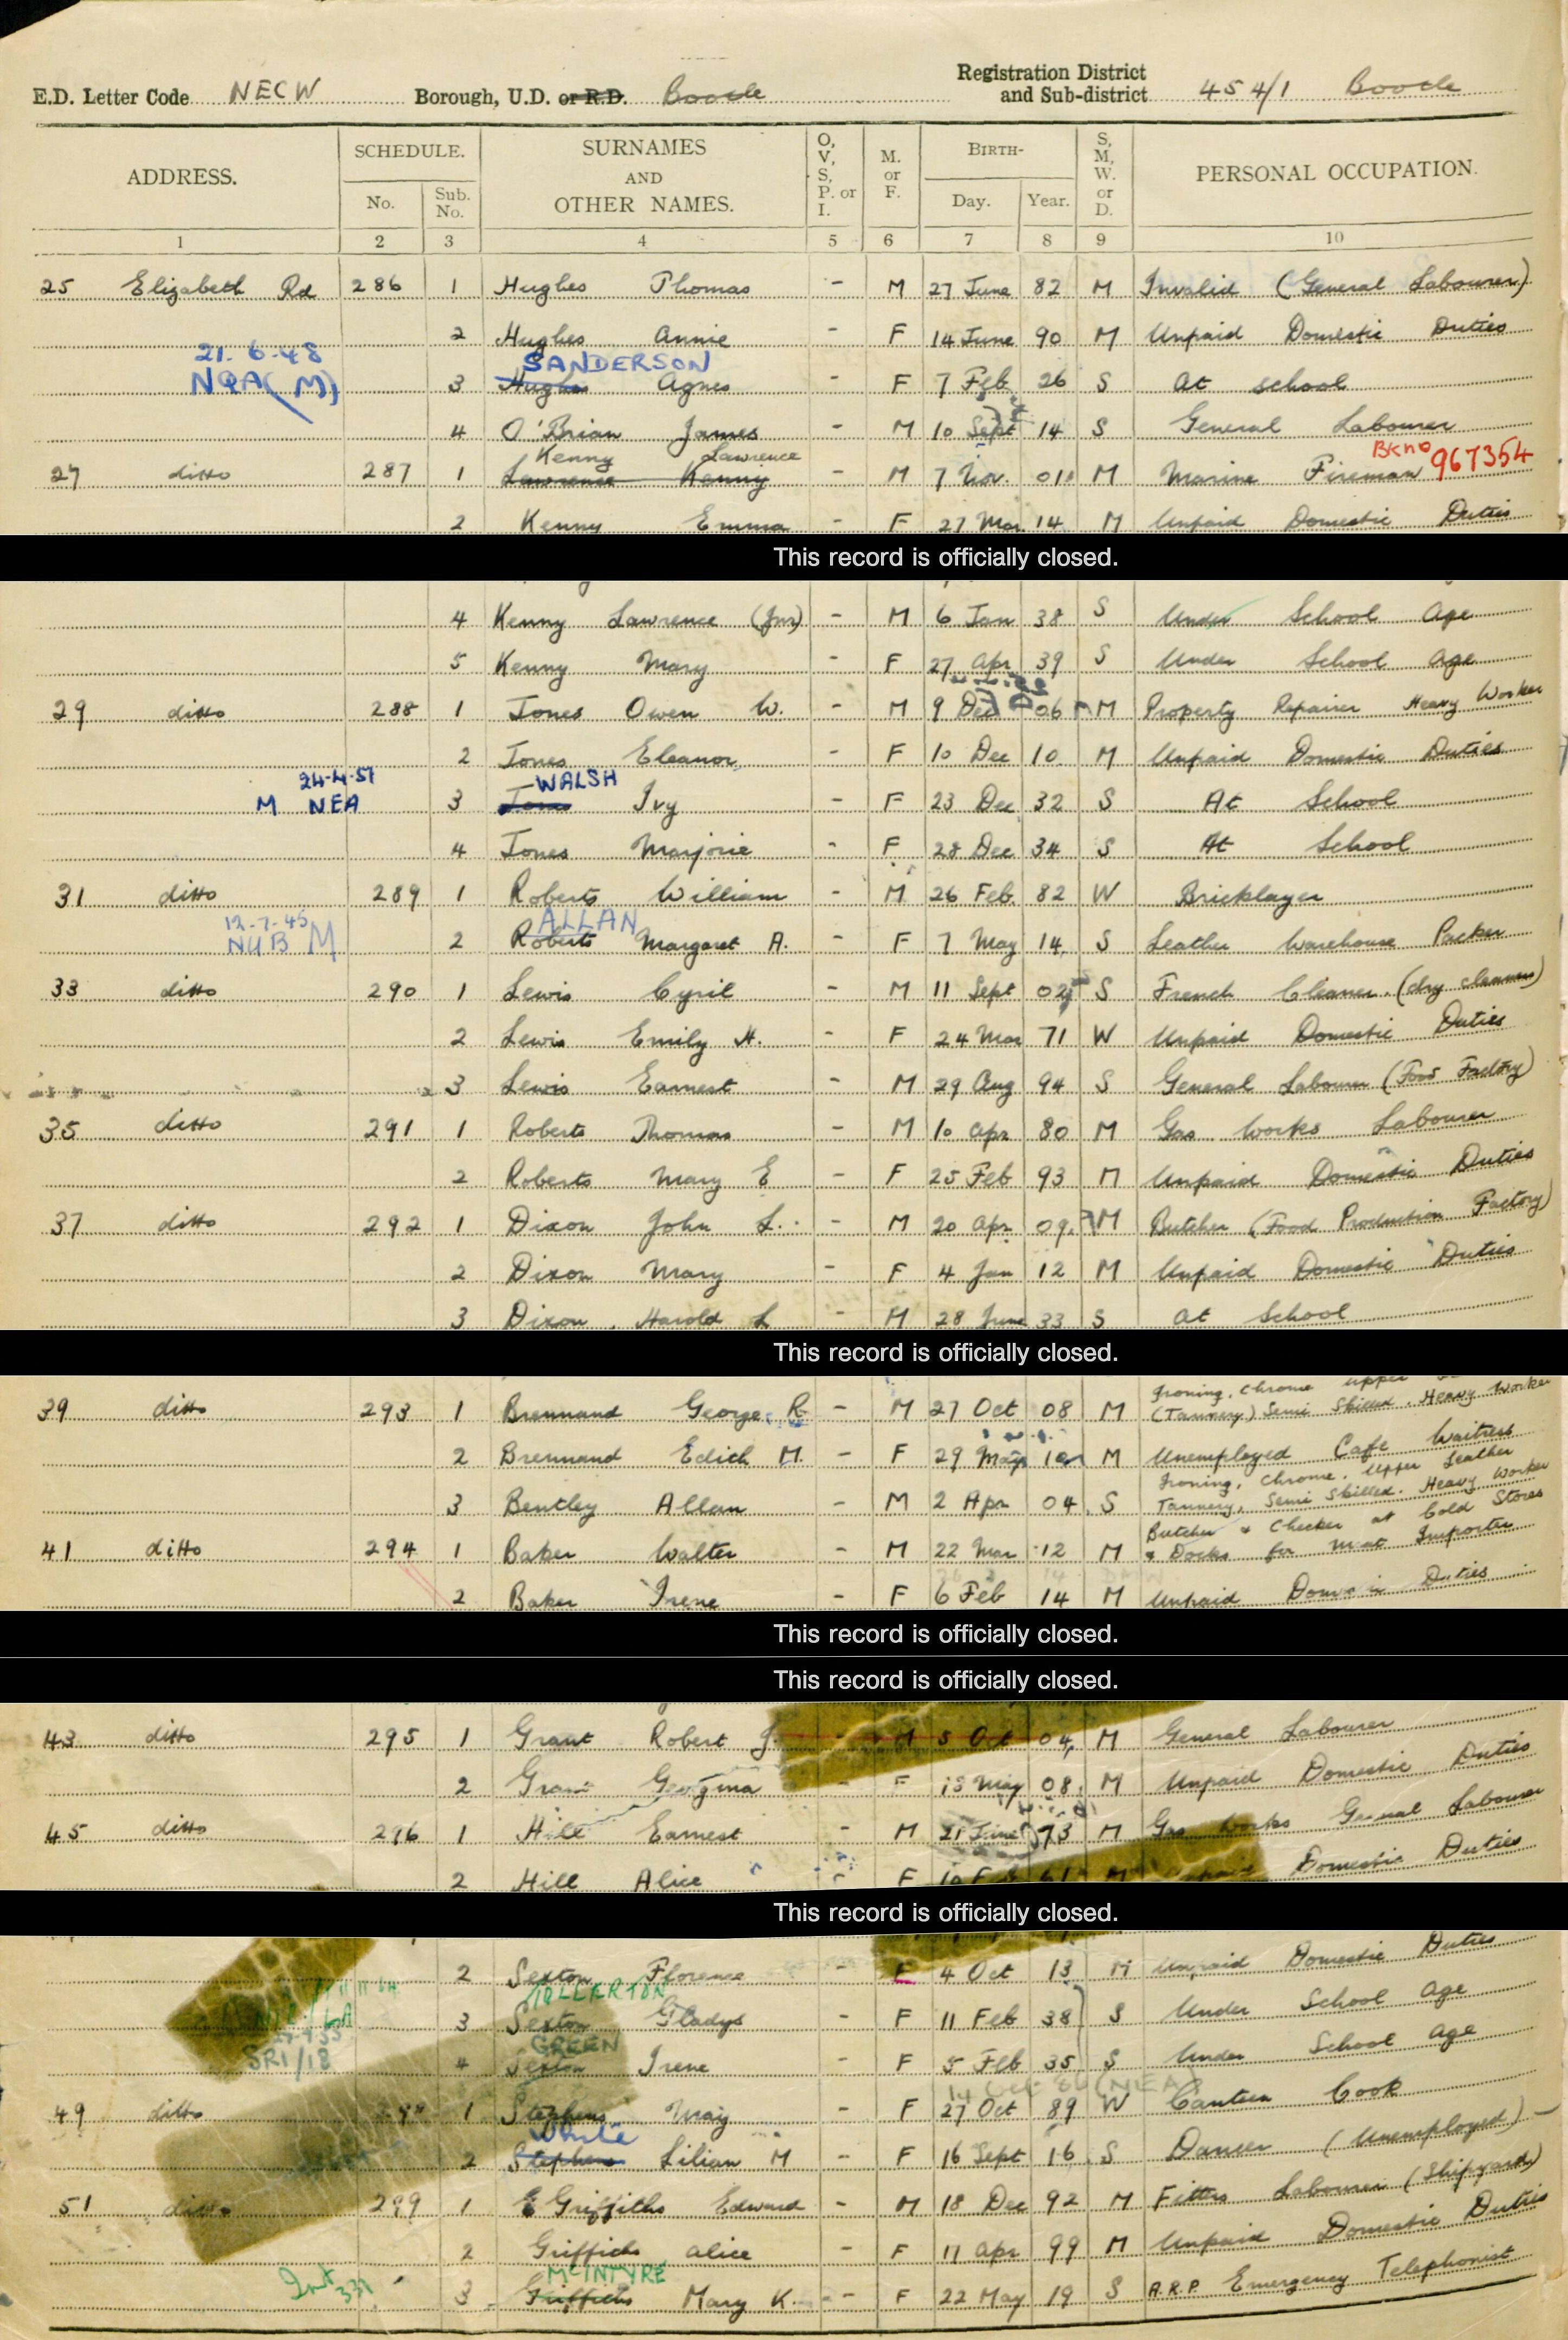 E.D. Letter Code NECW Borough, U.D. or R.D. Bootle Registration District and Sub-district 454/1 Bootle
ADDRESS. SCHEDULE. No. Sub. No. SURNAMES AND OTHER NAMES. O, V, S, P. or I. M. or F. BIRTH- Day. Year. S, M, W. or D. PERSONAL OCCUPATION.
1 2 3 4 5 6 7 8 9 10
25 Elizabeth Rd 286 1 Hughes Thomas - M 27 June 82 M Invalid (General Labourer)
2 Hughes Annie - F 14 June 90 M Unpaid Domestic Duties
21.6.48 SANDERSON
NQA (M) 3 Hughes Agnes - F 7 Feb 26 S At school
4 O'Brian James - M 10 Sept 14 S General Labourer
Kenny Lawrence BK no 967354
27 ditto 287 1 Lawrence Kenny - M 7 Nov. 01 M Marine Fireman
2 Kenny Emma - F 27 Mar 14 M Unpaid Domestic Duties
This record is officially closed.
4 Kenny Lawrence (Jnr) - M 6 Jan 38 S Under School Age
5 Kenny Mary - F 27 Apr 39 S Under School Age
29 ditto 288 1 Jones Owen W. - M 9 Dec 06 M Property Repairer Heavy Worker
2 Jones Eleanor - F 10 Dec 10 M Unpaid Domestic Duties
24.4.51 WALSH
M NEA 3 Jones Ivy - F 23 Dec 32 S At School
4 Jones Marjorie - F 28 Dec 34 S At School
31 ditto 289 1 Roberts William - M 26 Feb 82 W Bricklayer
12.7.45 ALLAN
NUB M 2 Roberts Margaret A. - F 7 May 14 S Leather Warehouse Packer
33 ditto 290 1 Lewis Cyril - M 11 Sept 02 S French Cleaner. (dry cleaners)
2 Lewis Emily H. - F 24 Mar 71 W Unpaid Domestic Duties
3 Lewis Earnest - M 29 Aug 94 S General Labourer (Food Factory)
35 ditto 291 1 Roberts Thomas - M 10 Apr 80 M Gas Works Labourer
2 Roberts Mary E - F 25 Feb 93 M Unpaid Domestic Duties
37 ditto 292 1 Dixon John L. - M 20 Apr 09 M Butcher (Food Production Factory)
2 Dixon Mary - F 4 Jan 12 M Unpaid Domestic Duties
3 Dixon Harold L - M 28 June 33 S At School
This record is officially closed.
Ironing, Chrome upper
39 ditto 293 1 Brennand George R - M 27 Oct 08 M (Tannery) Semi Skilled. Heavy Worker
2 Brennand Edith M. - F 29 May 10 M Unemployed Cafe Waitress
Ironing, Chrome. Upper Leather
3 Bentley Allan - M 2 Apr 04 S Tannery, Semi Skilled. Heavy Worker
Butcher & Checker at Cold Stores
41 ditto 294 1 Baker Walter - M 22 Mar 12 M & Docks for Meat Importer
2 Baker Irene - F 6 Feb 14 M Unpaid Domestic Duties
This record is officially closed.
This record is officially closed.
43 ditto 295 1 Grant Robert J. - M 5 Oct 04 M General Labourer
2 Grant Georgina - F 15 May 08 M Unpaid Domestic Duties
45 ditto 296 1 Hill Earnest - M 21 June 73 M Gas Works General Labourer
2 Hill Alice - F 10 61 M Unpaid Domestic Duties
This record is officially closed.
2 Sexton Florence - F 4 Oct 13 M Unpaid Domestic Duties
3 Sexton Gladys - F 11 Feb 38 S Under School Age
SR1/18 GREEN
4 Sexton Irene - F 5 Feb 35 S Under School Age
49 ditto 1 Stephens May - F 27 Oct 89 W Canteen Cook
White
2 Stephens Lilian M - F 16 Sept 16 S Dancer (Unemployed) -
51 ditto 299 1 Griffiths Edward - M 18 Dec 92 M Fitters Labourer (Shipyard)
2 Griffiths Alice - F 11 Apr 99 M Unpaid Domestic Duties
McINTYRE
331 3 Griffiths Mary K. - F 22 May 19 S A.R.P Emergency Telephonist